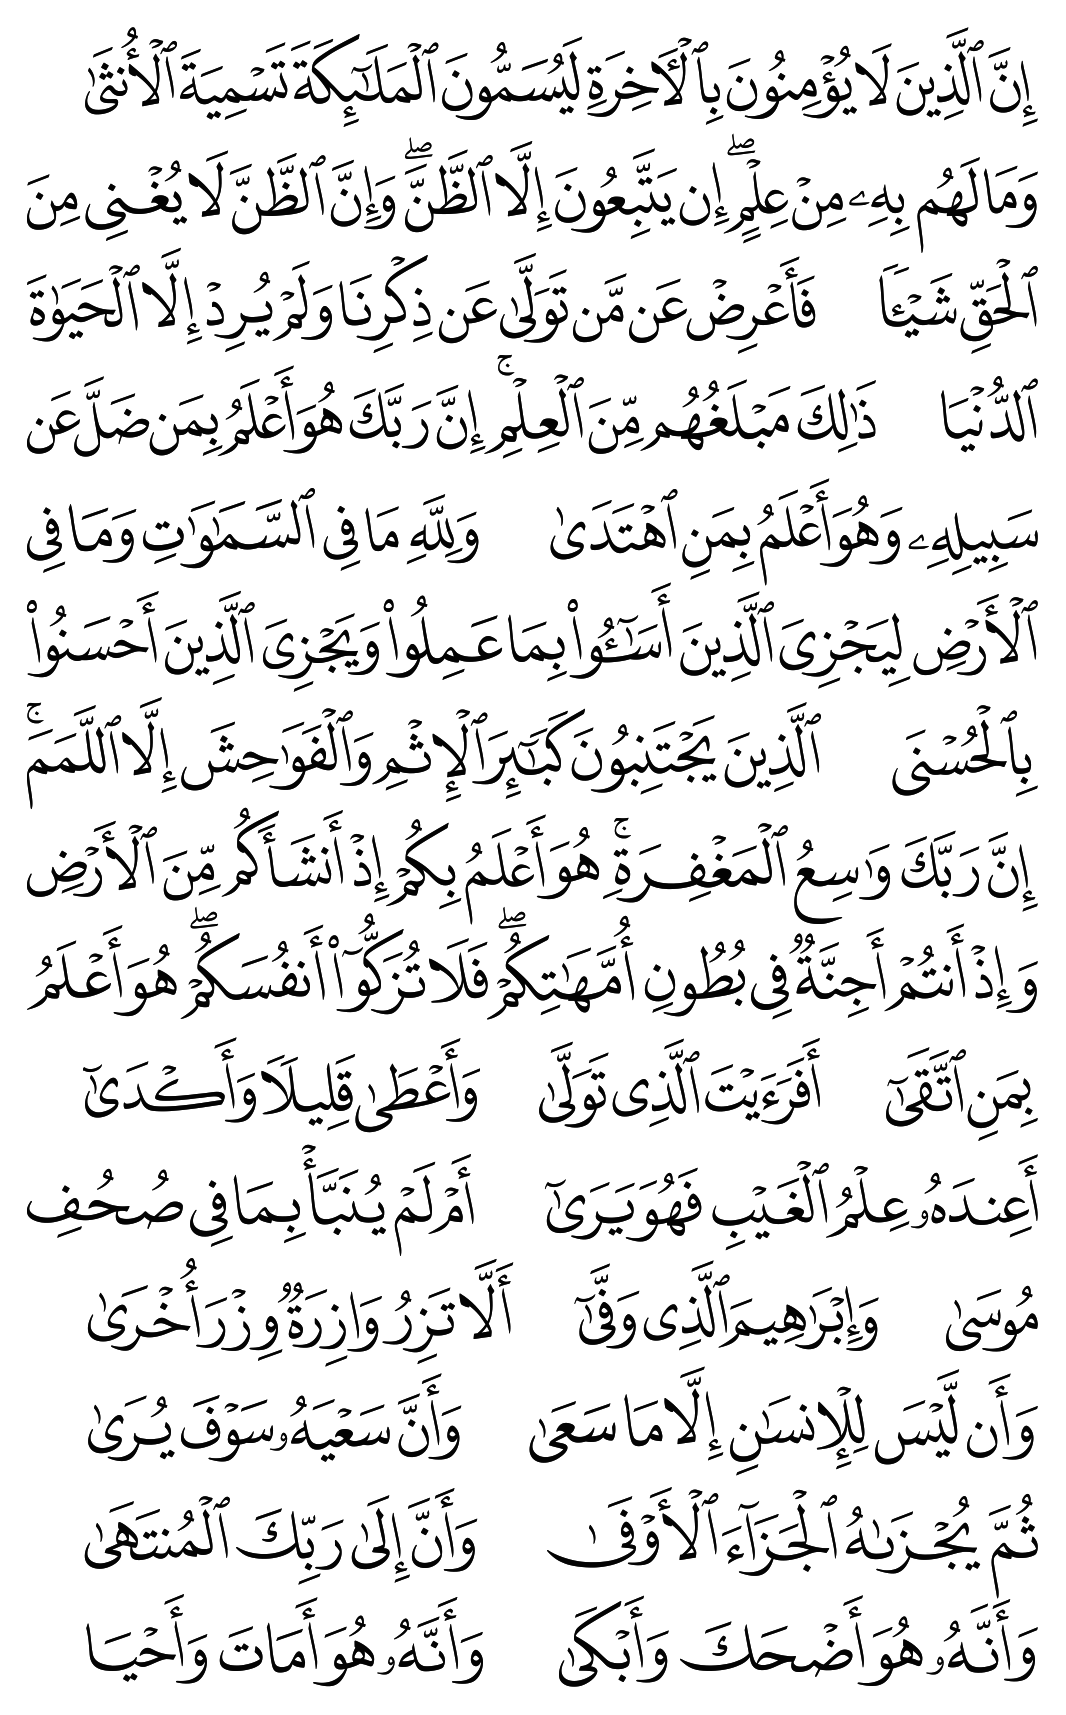 إِنَّ ٱلَّذِينَ لَا يُؤْمِنُونَ بِٱلْـَٔاخِرَةِ لَيُسَمُّونَ ٱلْمَلَـٰٓئِكَةَ تَسْمِيَةَ ٱلْأُنثَىٰ
وَمَا لَهُم بِهِۦ مِنْ عِلْمٍ ۖ إِن يَتَّبِعُونَ إِلَّا ٱلظَّنَّ ۖ وَإِنَّ ٱلظَّنَّ لَا يُغْنِى مِنَ
ٱلْحَقِّ شَيْـًٔا فَأَعْرِضْ عَن مَّن تَوَلَّىٰ عَن ذِكْرِنَا وَلَمْ يُرِدْ إِلَّا ٱلْحَيَوٰةَ
ٱلدُّنْيَا ذَٰلِكَ مَبْلَغُهُم مِّنَ ٱلْعِلْمِ ۚ إِنَّ رَبَّكَ هُوَ أَعْلَمُ بِمَن ضَلَّ عَن
سَبِيلِهِۦ وَهُوَ أَعْلَمُ بِمَنِ ٱهْتَدَىٰ وَلِلَّهِ مَا فِى ٱلسَّمَـٰوَٰتِ وَمَا فِى
ٱلْأَرْضِ لِيَجْزِىَ ٱلَّذِينَ أَسَـٰٓـُٔوا۟ بِمَا عَمِلُوا۟ وَيَجْزِىَ ٱلَّذِينَ أَحْسَنُوا۟
بِٱلْحُسْنَى ٱلَّذِينَ يَجْتَنِبُونَ كَبَـٰٓئِرَ ٱلْإِثْمِ وَٱلْفَوَٰحِشَ إِلَّا ٱللَّمَمَ ۚ
إِنَّ رَبَّكَ وَٰسِعُ ٱلْمَغْفِرَةِ ۚ هُوَ أَعْلَمُ بِكُمْ إِذْ أَنشَأَكُم مِّنَ ٱلْأَرْضِ
وَإِذْ أَنتُمْ أَجِنَّةٌ فِى بُطُونِ أُمَّهَـٰتِكُمْ ۖ فَلَا تُزَكُّوٓا۟ أَنفُسَكُمْ ۖ هُوَ أَعْلَمُ
بِمَنِ ٱتَّقَىٰٓ أَفَرَءَيْتَ ٱلَّذِى تَوَلَّىٰ وَأَعْطَىٰ قَلِيلًا وَأَكْدَىٰٓ
أَعِندَهُۥ عِلْمُ ٱلْغَيْبِ فَهُوَ يَرَىٰٓ أَمْ لَمْ يُنَبَّأْ بِمَا فِى صُحُفِ
مُوسَىٰ وَإِبْرَٰهِيمَ ٱلَّذِى وَفَّىٰٓ أَلَّا تَزِرُ وَازِرَةٌ وِزْرَ أُخْرَىٰ
وَأَن لَّيْسَ لِلْإِنسَـٰنِ إِلَّا مَا سَعَىٰ وَأَنَّ سَعْيَهُۥ سَوْفَ يُرَىٰ
ثُمَّ يُجْزَىٰهُ ٱلْجَزَآءَ ٱلْأَوْفَىٰ وَأَنَّ إِلَىٰ رَبِّكَ ٱلْمُنتَهَىٰ
وَأَنَّهُۥ هُوَ أَضْحَكَ وَأَبْكَىٰ وَأَنَّهُۥ هُوَ أَمَاتَ وَأَحْيَا